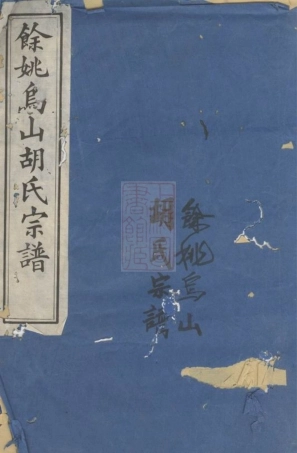 餘姚烏山胡氏宗譜
餘姚烏山
胡氏宗譜